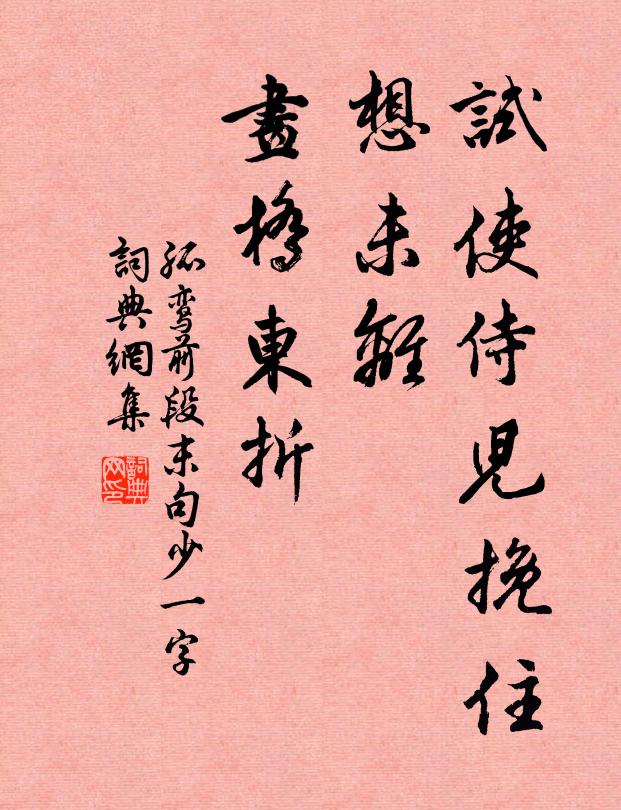 試使侍兒挽住
想未離
畫橋東折
孤鸾前段末句少一字
詞典網集
詞典网印